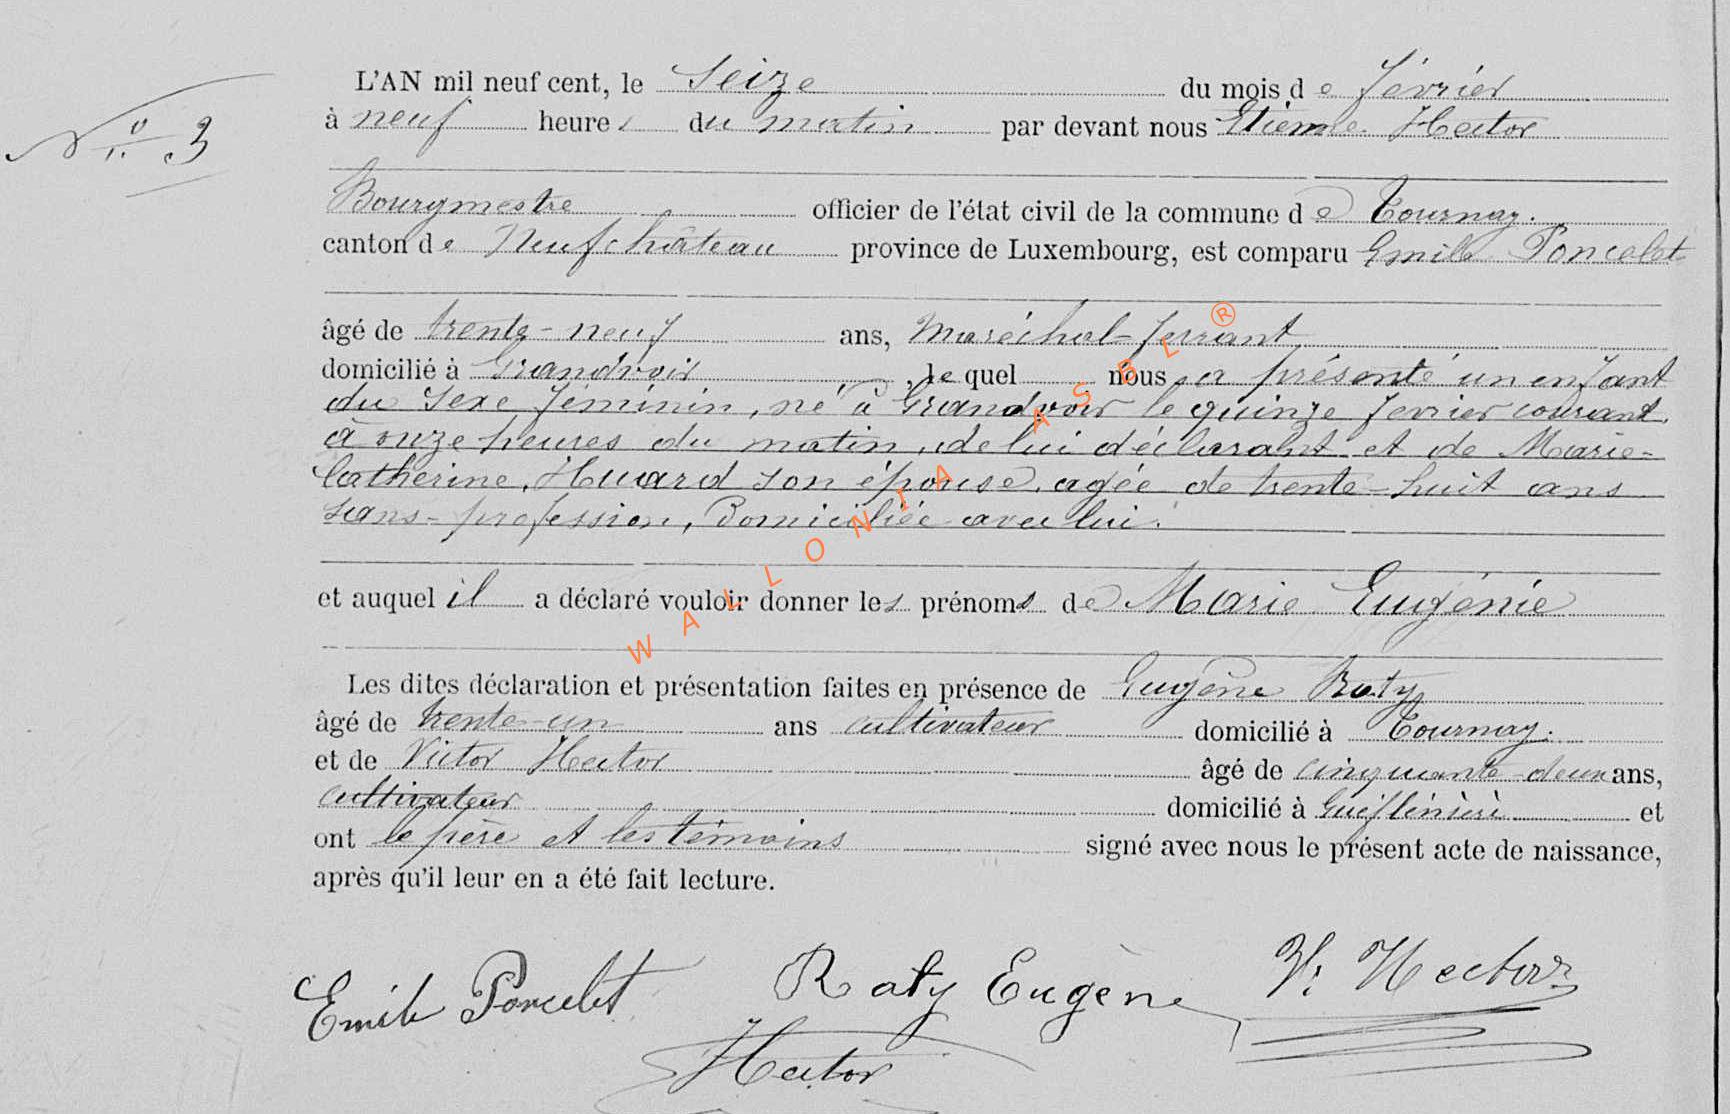 L'AN mil neuf cent, le Seize du mois de février
N° 3
à neuf heures du matin par devant nous Etienne Hector
Bourgmestre officier de l'état civil de la commune de Tournay.
canton de Neufchâteau province de Luxembourg, est comparu Emile Poncelet
âgé de trente-neuf ans, Maréchal-ferrant
domicilié à Grandvoir, le quel nous a présenté un enfant
du sexe féminin, né à Grandvoir le quinze fevrier courant
à onze heures du matin, de lui déclarant et de Marie-
Catherine, Huard son épouse, agée de trente-huit ans
sans-profession, Domiciliée avec lui.
et auquel il a déclaré vouloir donner les prénoms de Marie Eugénie
Les dites déclaration et présentation faites en présence de Eugène Raty
âgé de trente-un ans cultivateur domicilié à Tournay.
et de Victor Hector âgé de cinquante-deux ans,
cultivateur domicilié à et
ont le père et les témoins signé avec nous le présent acte de naissance,
après qu'il leur en a été fait lecture.
Emile Poncelet Raty Eugène V. Hector
Hector
WALLONIA ASBL ®